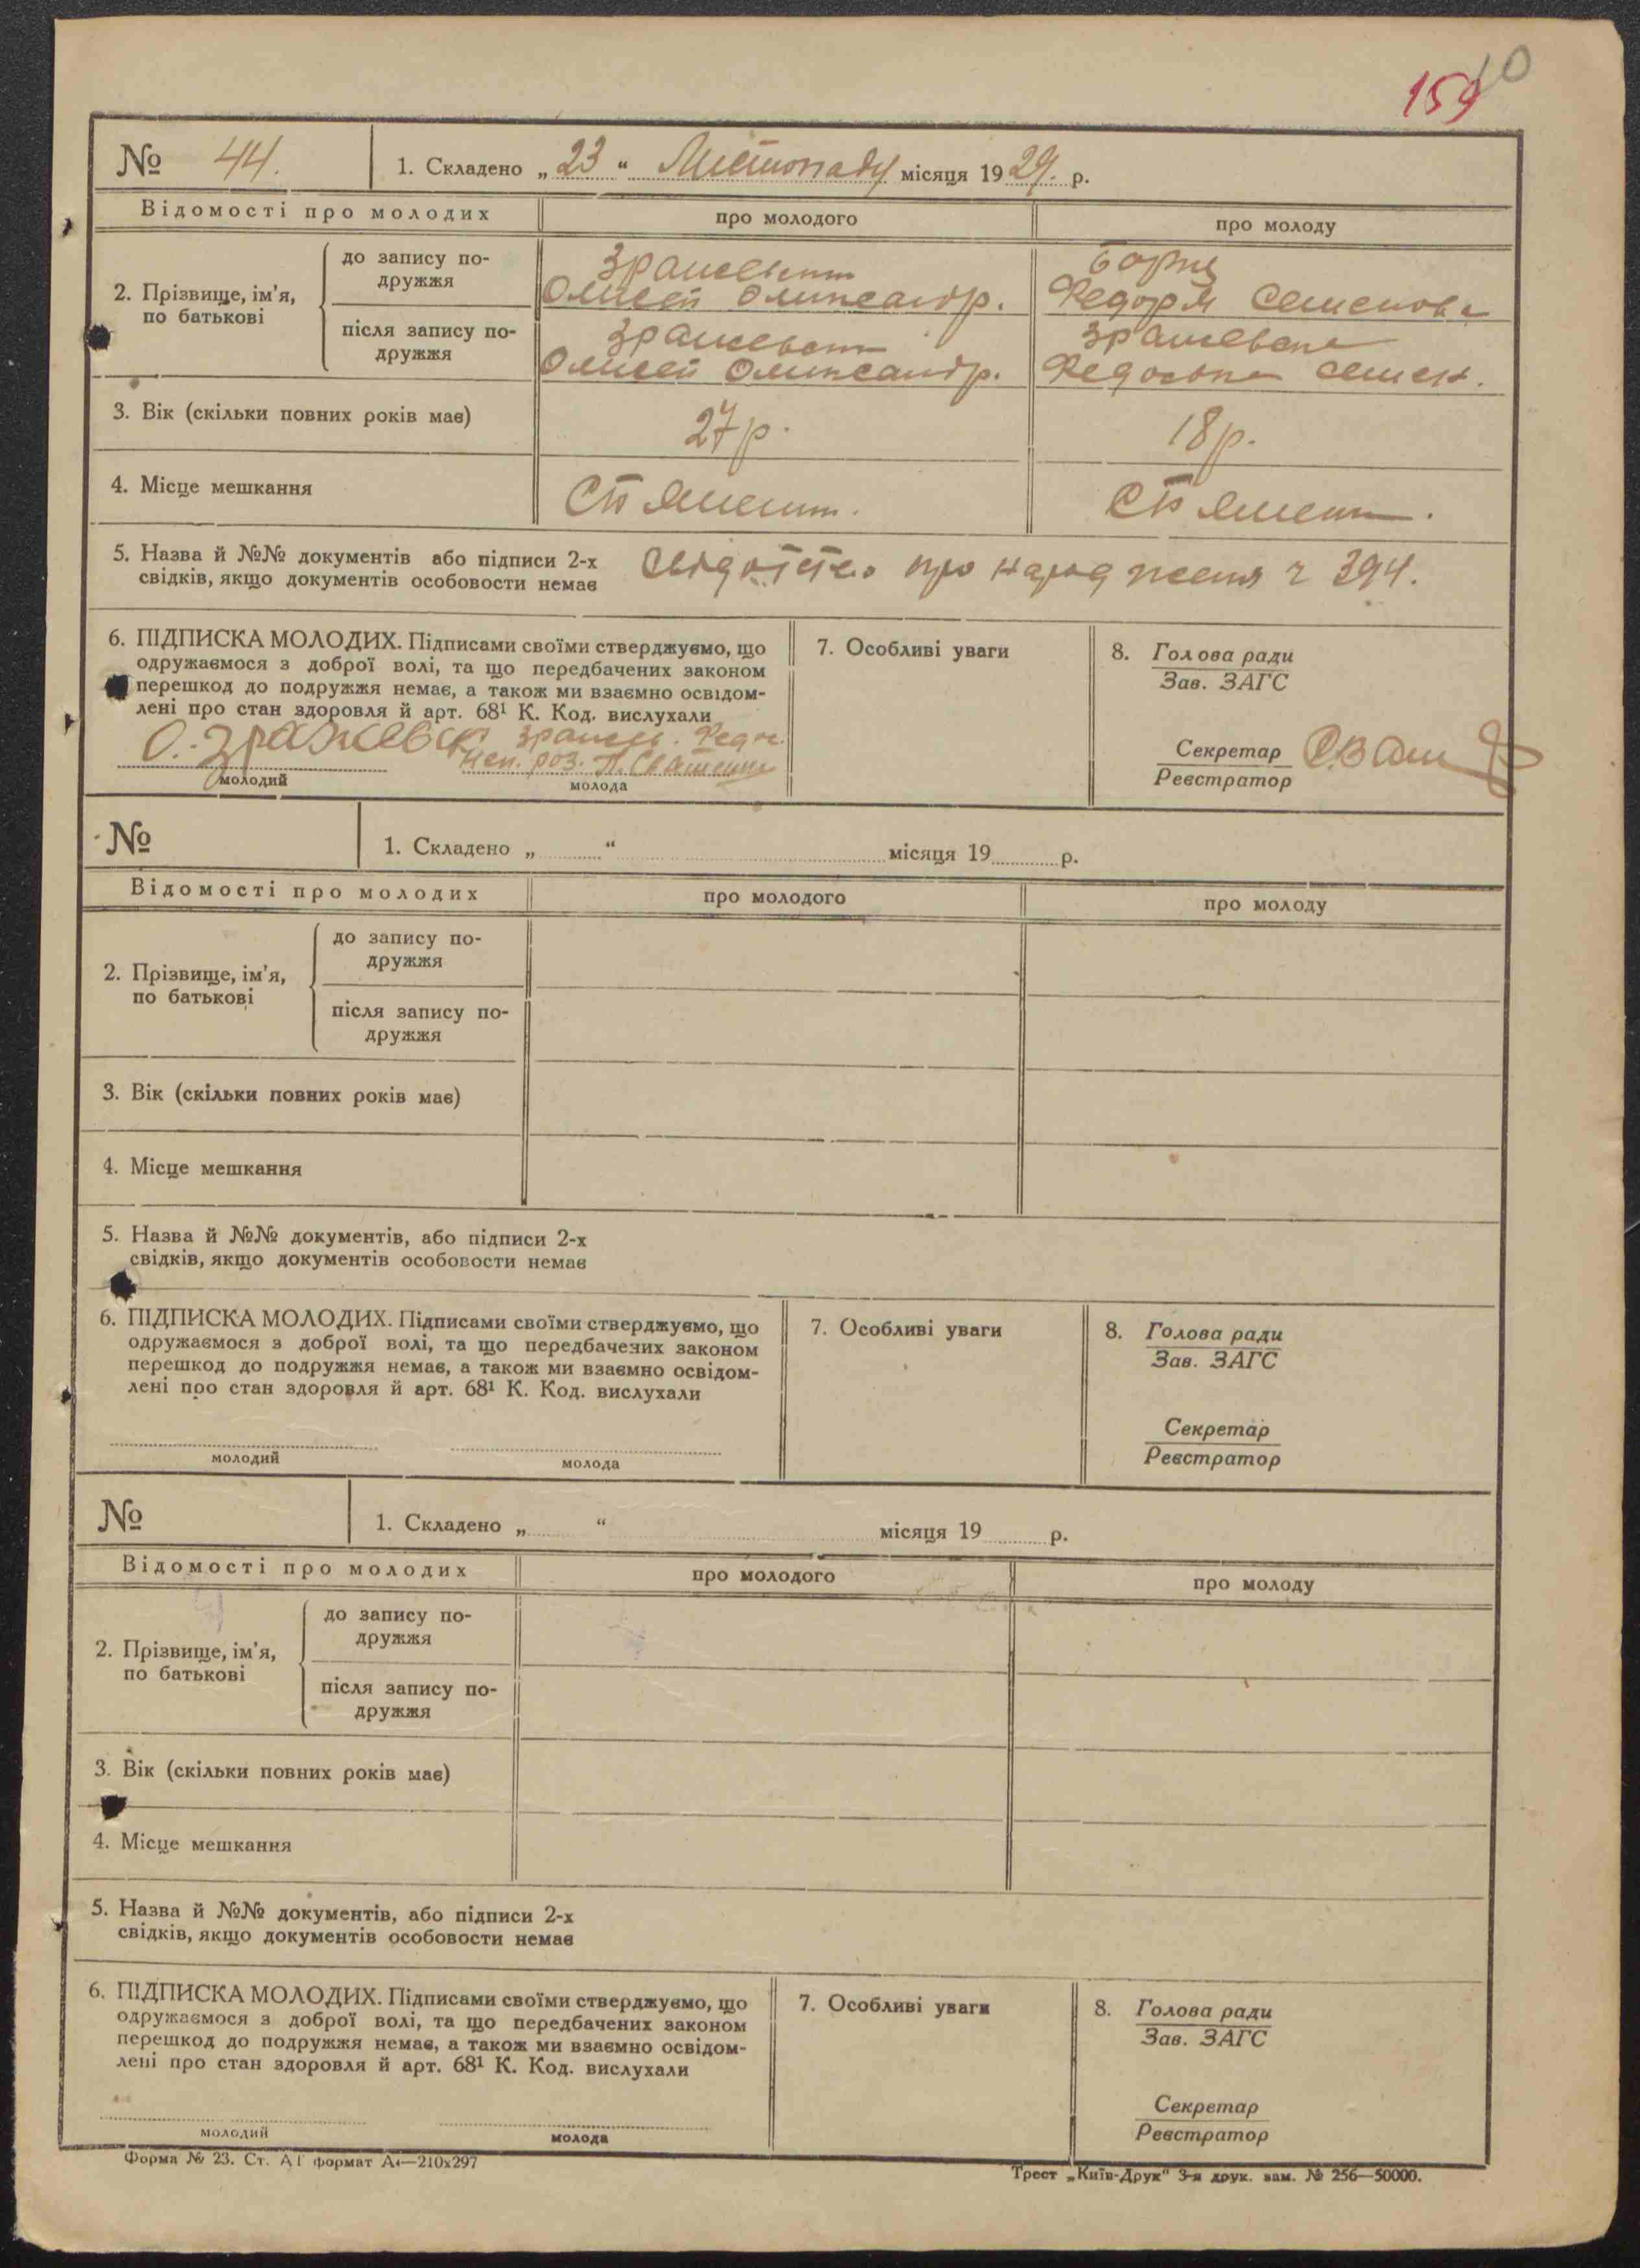 159
10
№ 44. 1. Складено „ 23 “ Листопаду місяця 1929. р.
Відомості про молодих про молодого про молоду
2. Прізвище, ім'я, по батькові
до запису по-
дружжя
Олександр.
після запису по-
дружжя
Олександр.
Семен.
3. Вік (скільки повних років має) 27 р. 18 р.
4. Місце мешкання
5. Назва й №№ документів або підписи 2-х
свідків, якщо документів особовости немає
про народження ч 394.
6. ПІДПИСКА МОЛОДИХ. Підписами своїми стверджуємо, що
одружаємося з доброї волі, та що передбачених законом
перешкод до подружжя немає, а також ми взаємно освідом-
лені про стан здоровля й арт. 68¹ К. Код. вислухали
молодий молода
7. Особливі уваги
8. Голова ради
Зав. ЗАГС
Секретар
Реєстратор
№ 1. Складено „ “ місяця 19 р.
Відомості про молодих про молодого про молоду
2. Прізвище, ім'я,
по батькові
до запису по-
дружжя
після запису по-
дружжя
3. Вік (скільки повних років має)
4. Місце мешкання
5. Назва й №№ документів, або підписи 2-х
свідків, якщо документів особовости немає
6. ПІДПИСКА МОЛОДИХ. Підписами своїми стверджуємо, що
одружаємося з доброї волі, та що передбачених законом
перешкод до подружжя немає, а також ми взаємно освідом-
лені про стан здоровля й арт. 68¹ К. Код. вислухали
молодий молода
7. Особливі уваги
8. Голова ради
Зав. ЗАГС
Секретар
Реєстратор
№ 1. Складено „ “ місяця 19 р.
Відомості про молодих про молодого про молоду
2. Прізвище, ім'я,
по батькові
до запису по-
дружжя
після запису по-
дружжя
3. Вік (скільки повних років має)
4. Місце мешкання
5. Назва й №№ документів, або підписи 2-х
свідків, якщо документів особовости немає
6. ПІДПИСКА МОЛОДИХ. Підписами своїми стверджуємо, що
одружаємося з доброї волі, та що передбачених законом
перешкод до подружжя немає, а також ми взаємно освідом-
лені про стан здоровля й арт. 68¹ К. Код. вислухали
молодий молода
7. Особливі уваги
8. Голова ради
Зав. ЗАГС
Секретар
Реєстратор
Форма № 23. Ст. А1 формат А4—210х297
Трест „Київ-Друк“ 3-я друк. зам. № 256—50000.